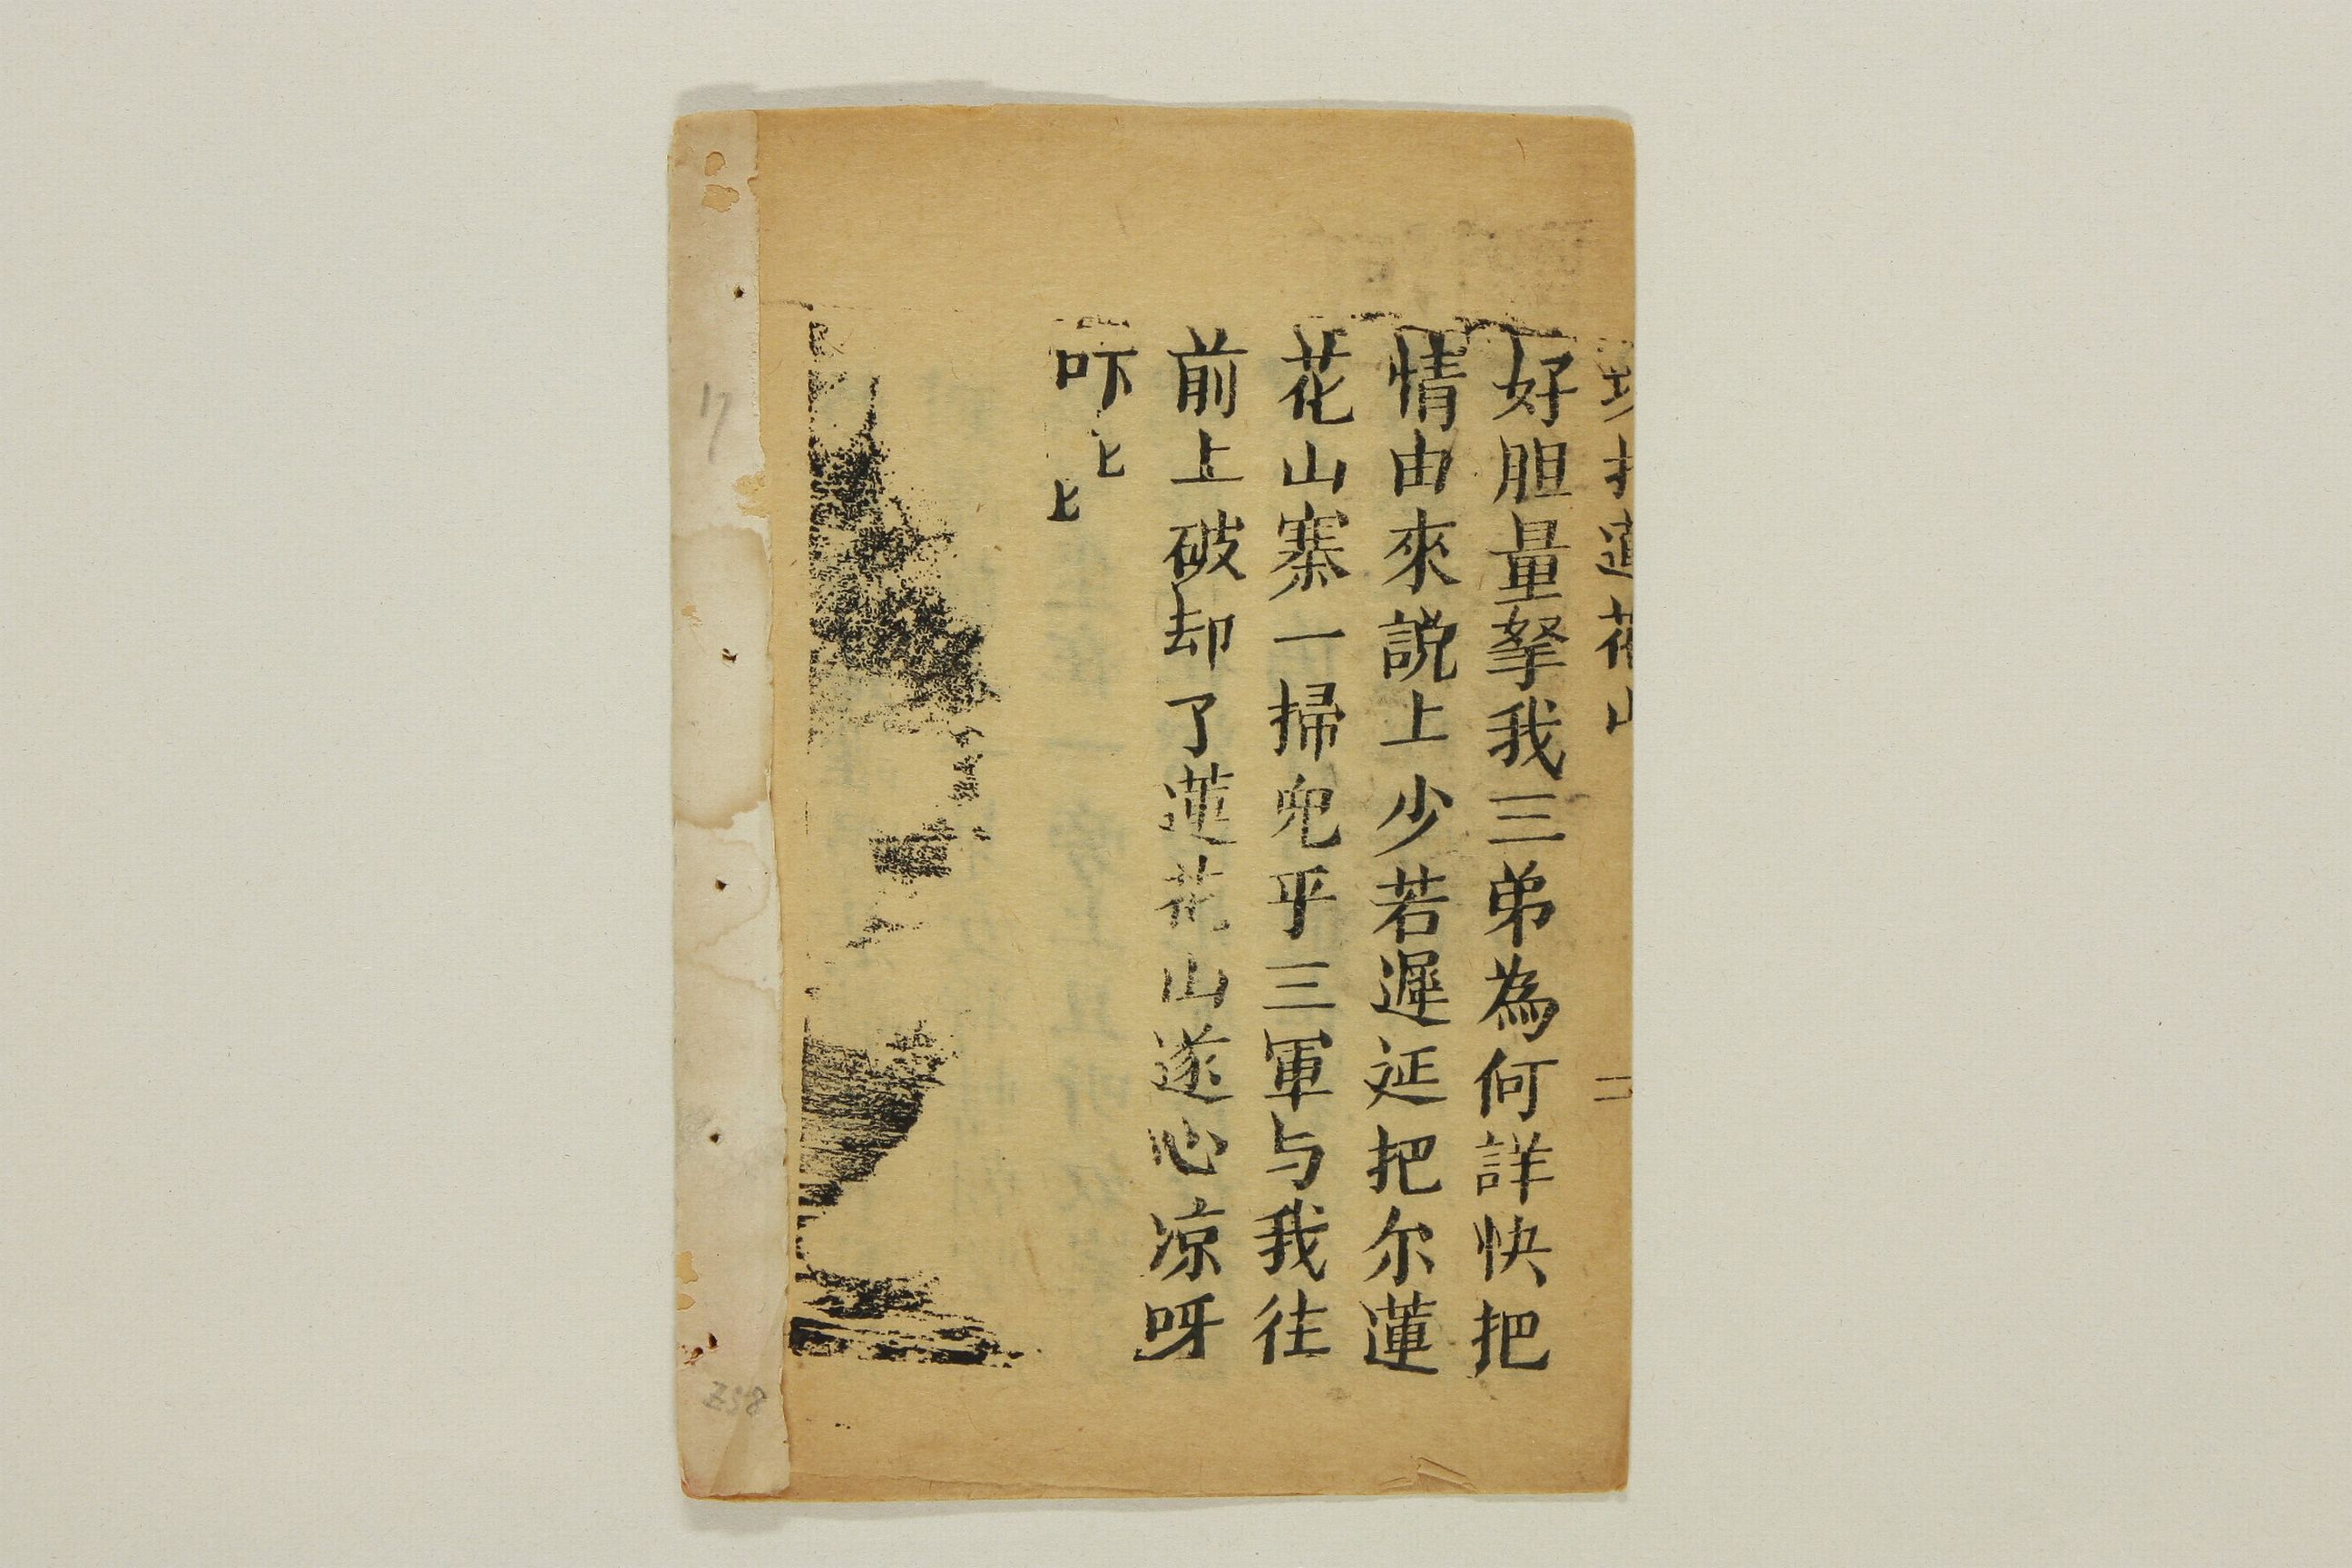 打蓮花山 二
好胆量拏我三弟為何詳快把
情由來説上少若遲延把尔蓮
花山寨一掃兜乎三軍与我往
前上破却了蓮花山遂心凉呀
咔上上
17
Z58